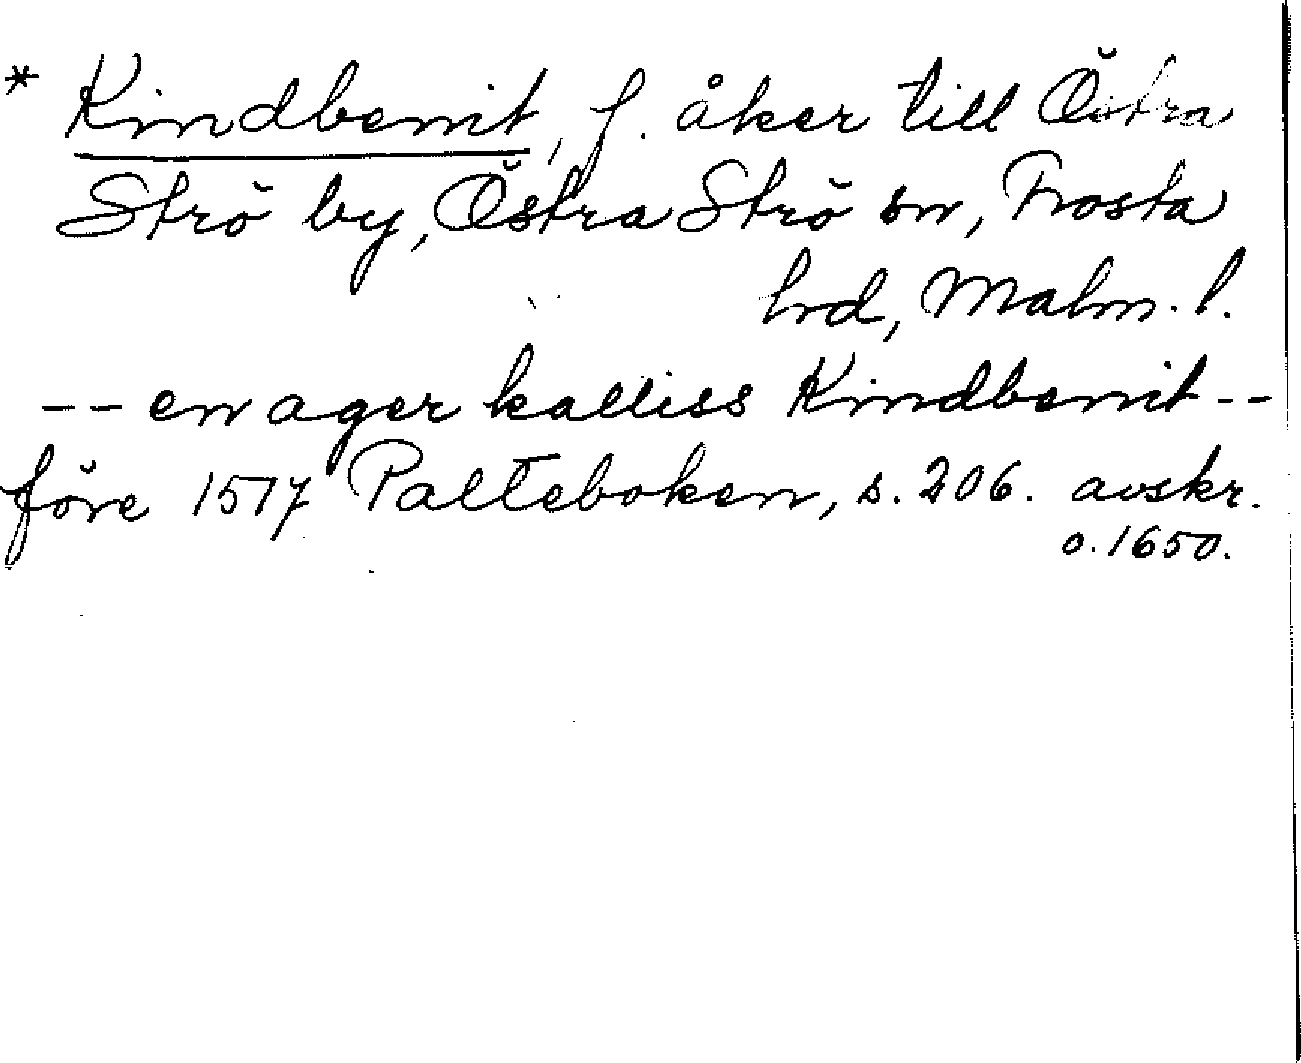 * Kindbenit, f. åker till Östra
Strö by, Östra Strö sn, Frosta
hrd, Malm. l.
-- en ager kalliss Kindbenit --
före 1517 Palteboken, s. 206. avskr.
o. 1650.